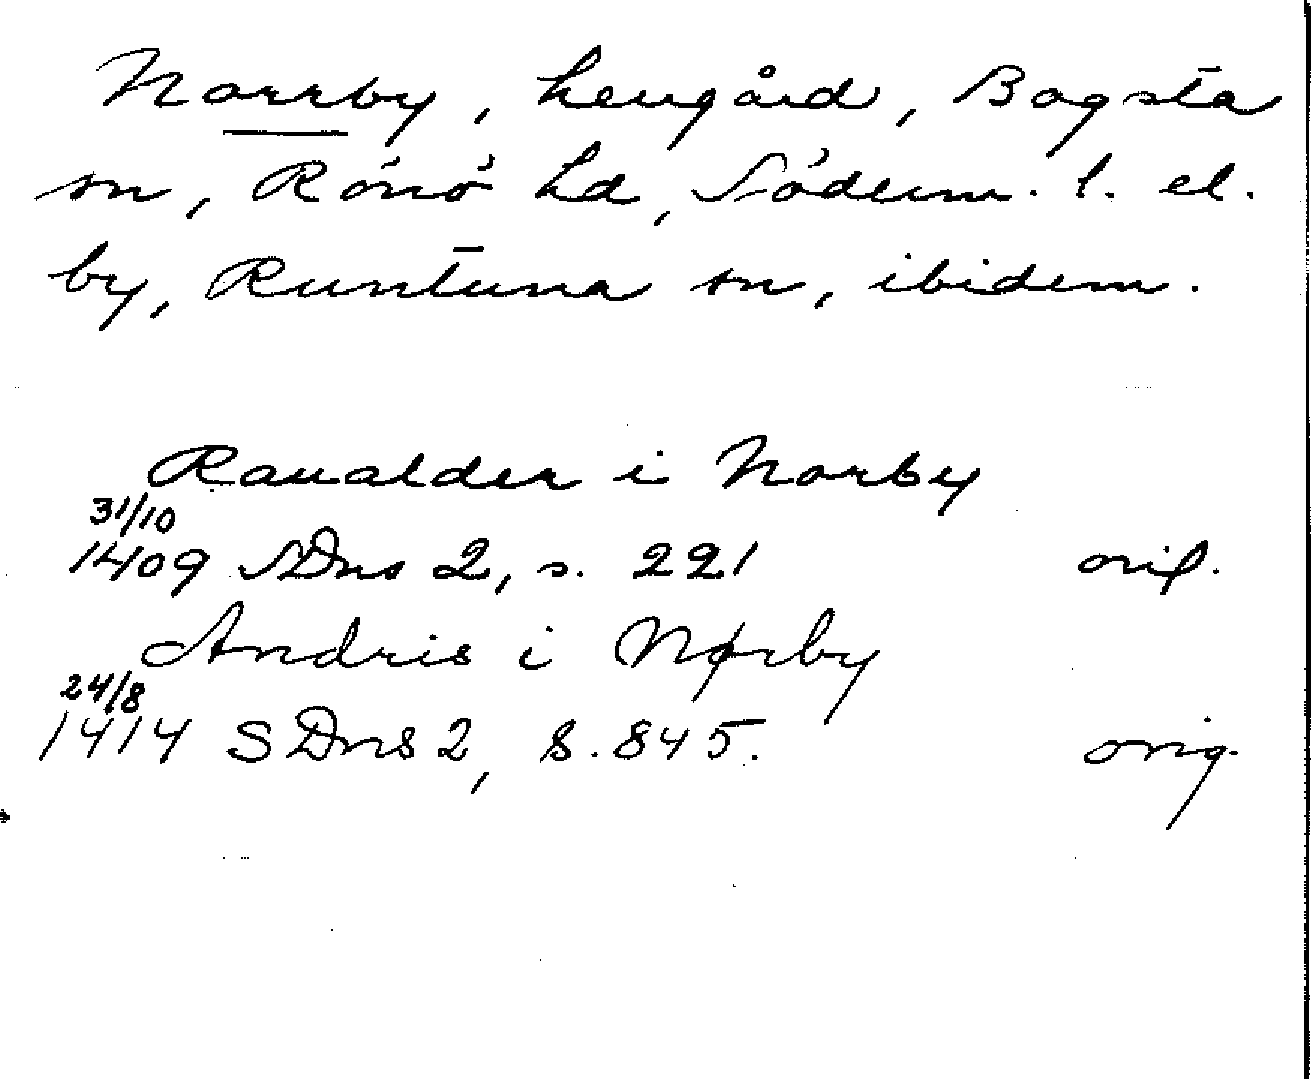 Norrby, hemgård, Bogsta
sn, Rönö hd, Söderm. l. el.
by, Runtuna sn, ibidem.
Raualder i Norby
31/10
1409 SDns 2, s. 221 orig.
Andris i Nørby
24/8
1414 SDns 2, s. 845. orig.